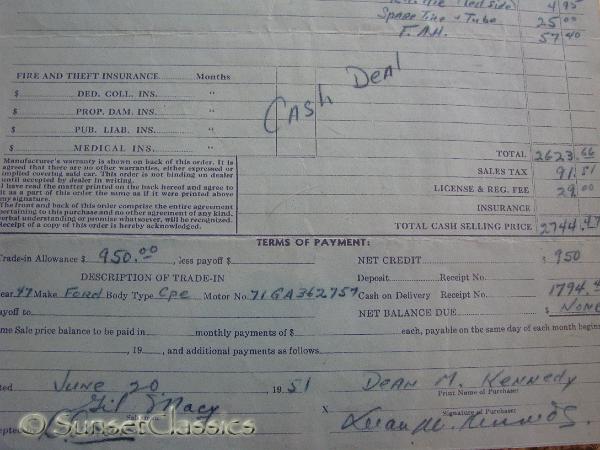 (Red Side) 4 95
Spare Tire & Tube 25 00
F.A.H. 57 40
FIRE AND THEFT INSURANCE Months
$ DED. COLL. INS. "
$ PROP. DAM. INS. "
$ PUB. LIAB. INS. "
$ MEDICAL INS. "
CASH DEAL
Manufacturer's warranty is shown on back of this order. It is
agreed that there are no other warranties, either expressed or
implied covering said car. This order is not binding on dealer
until accepted by dealer in writing.
I have read the matter printed on the back hereof and agree to
it as a part of this order the same as if it were printed above
my signature.
The front and back of this order comprise the entire agreement
pertaining to this purchase and no other agreement of any kind,
verbal understanding or promise whatsoever, will be recognized.
Receipt of a copy of this order is hereby acknowledged.
TOTAL 2623.66
SALES TAX 91.51
LICENSE & REG. FEE 29.00
INSURANCE
TOTAL CASH SELLING PRICE 2744.47
TERMS OF PAYMENT:
Trade-in Allowance $ 950.00, less payoff $
NET CREDIT $ 950
DESCRIPTION OF TRADE-IN
Deposit Receipt No.
ear 47 Make Ford Body Type Cpe Motor No. 71GA362757
Cash on Delivery Receipt No. 1794.4
ayoff to
NET BALANCE DUE $ NONE
me Sale price balance to be paid in monthly payments of $ each, payable on the same day of each month begin
, 19 , and additional payments as follows
ted June 20 1951
Dean M. Kennedy
Print Name of Purchaser
Gil Macy
Salesman
X
Signature of Purchaser
Dean M. Kennedy
cepted
© SunsetClassics